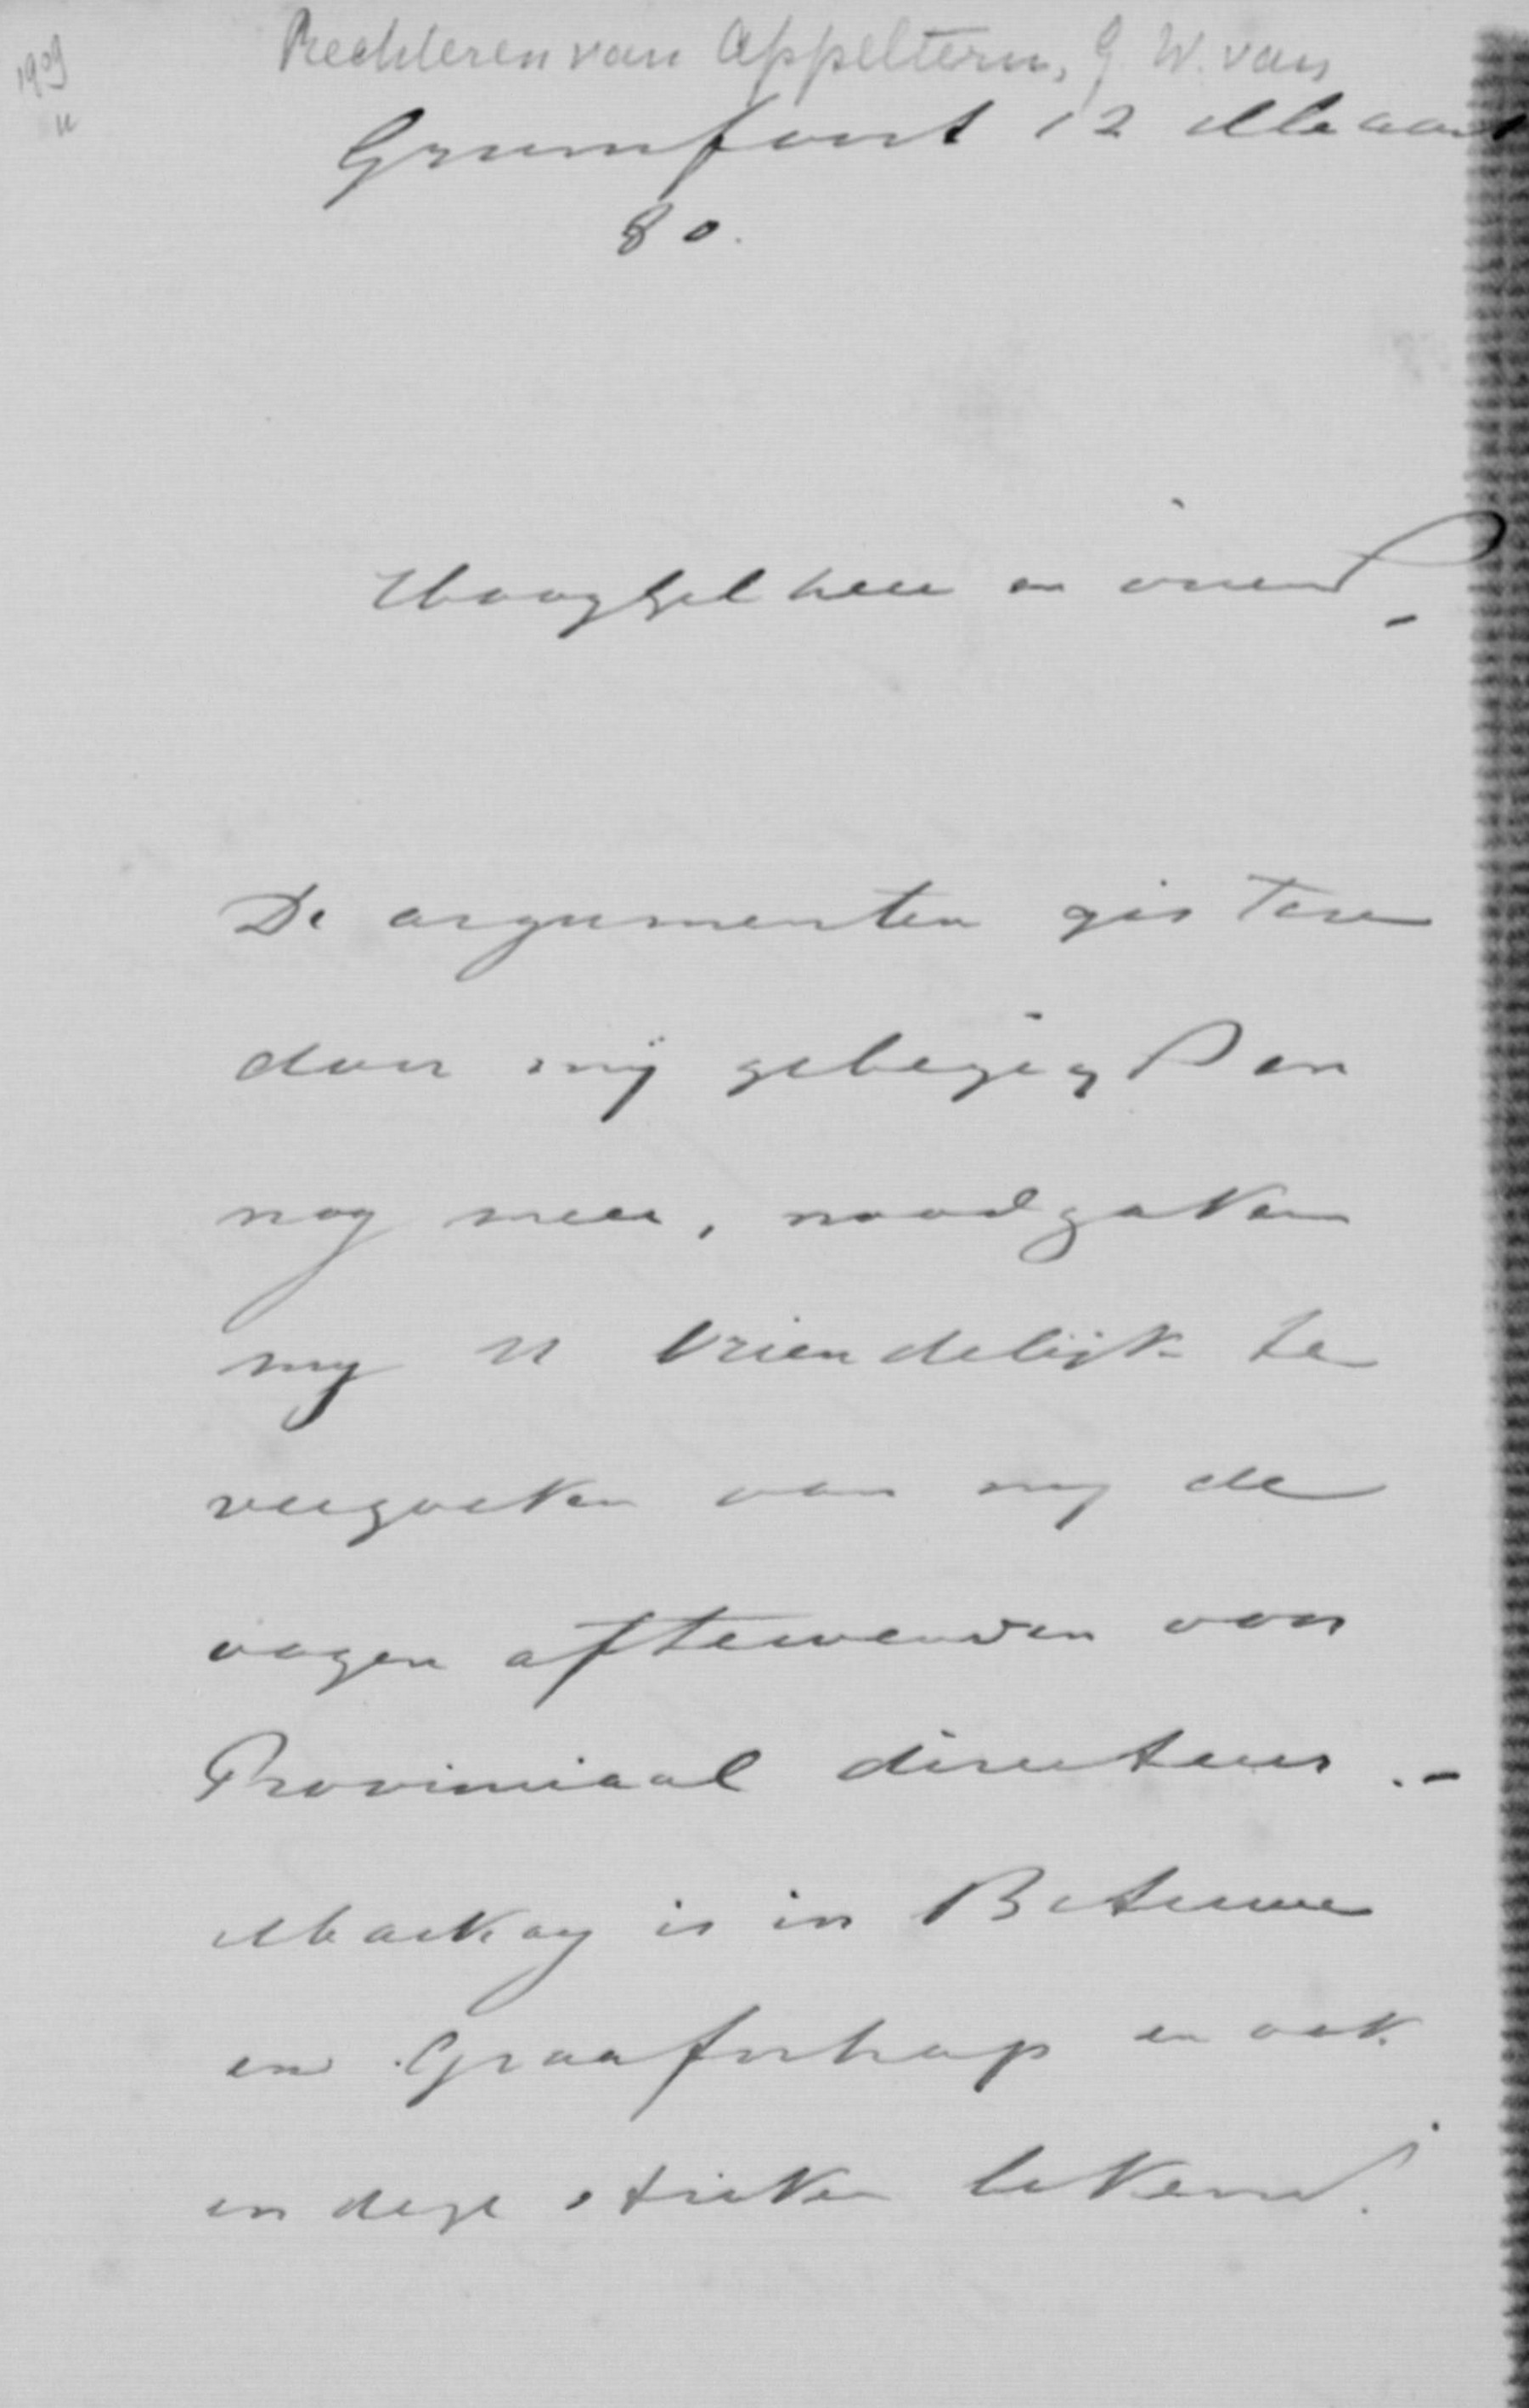 1909
Rechteren van Appeltern, G. W. van
Grunsfoort 12 Maart
80.
Hooggel heer en vriend
De argumenten gisteren
door mij gebezigd en
nog meer, noodzaken
mij U vriendelijk te
verzoeken van mij de
oogen aftewenden voor
Provinciaal directeur.-
Mackay is in Betuwe
en Graafschap en ook
in deze streken bekend.